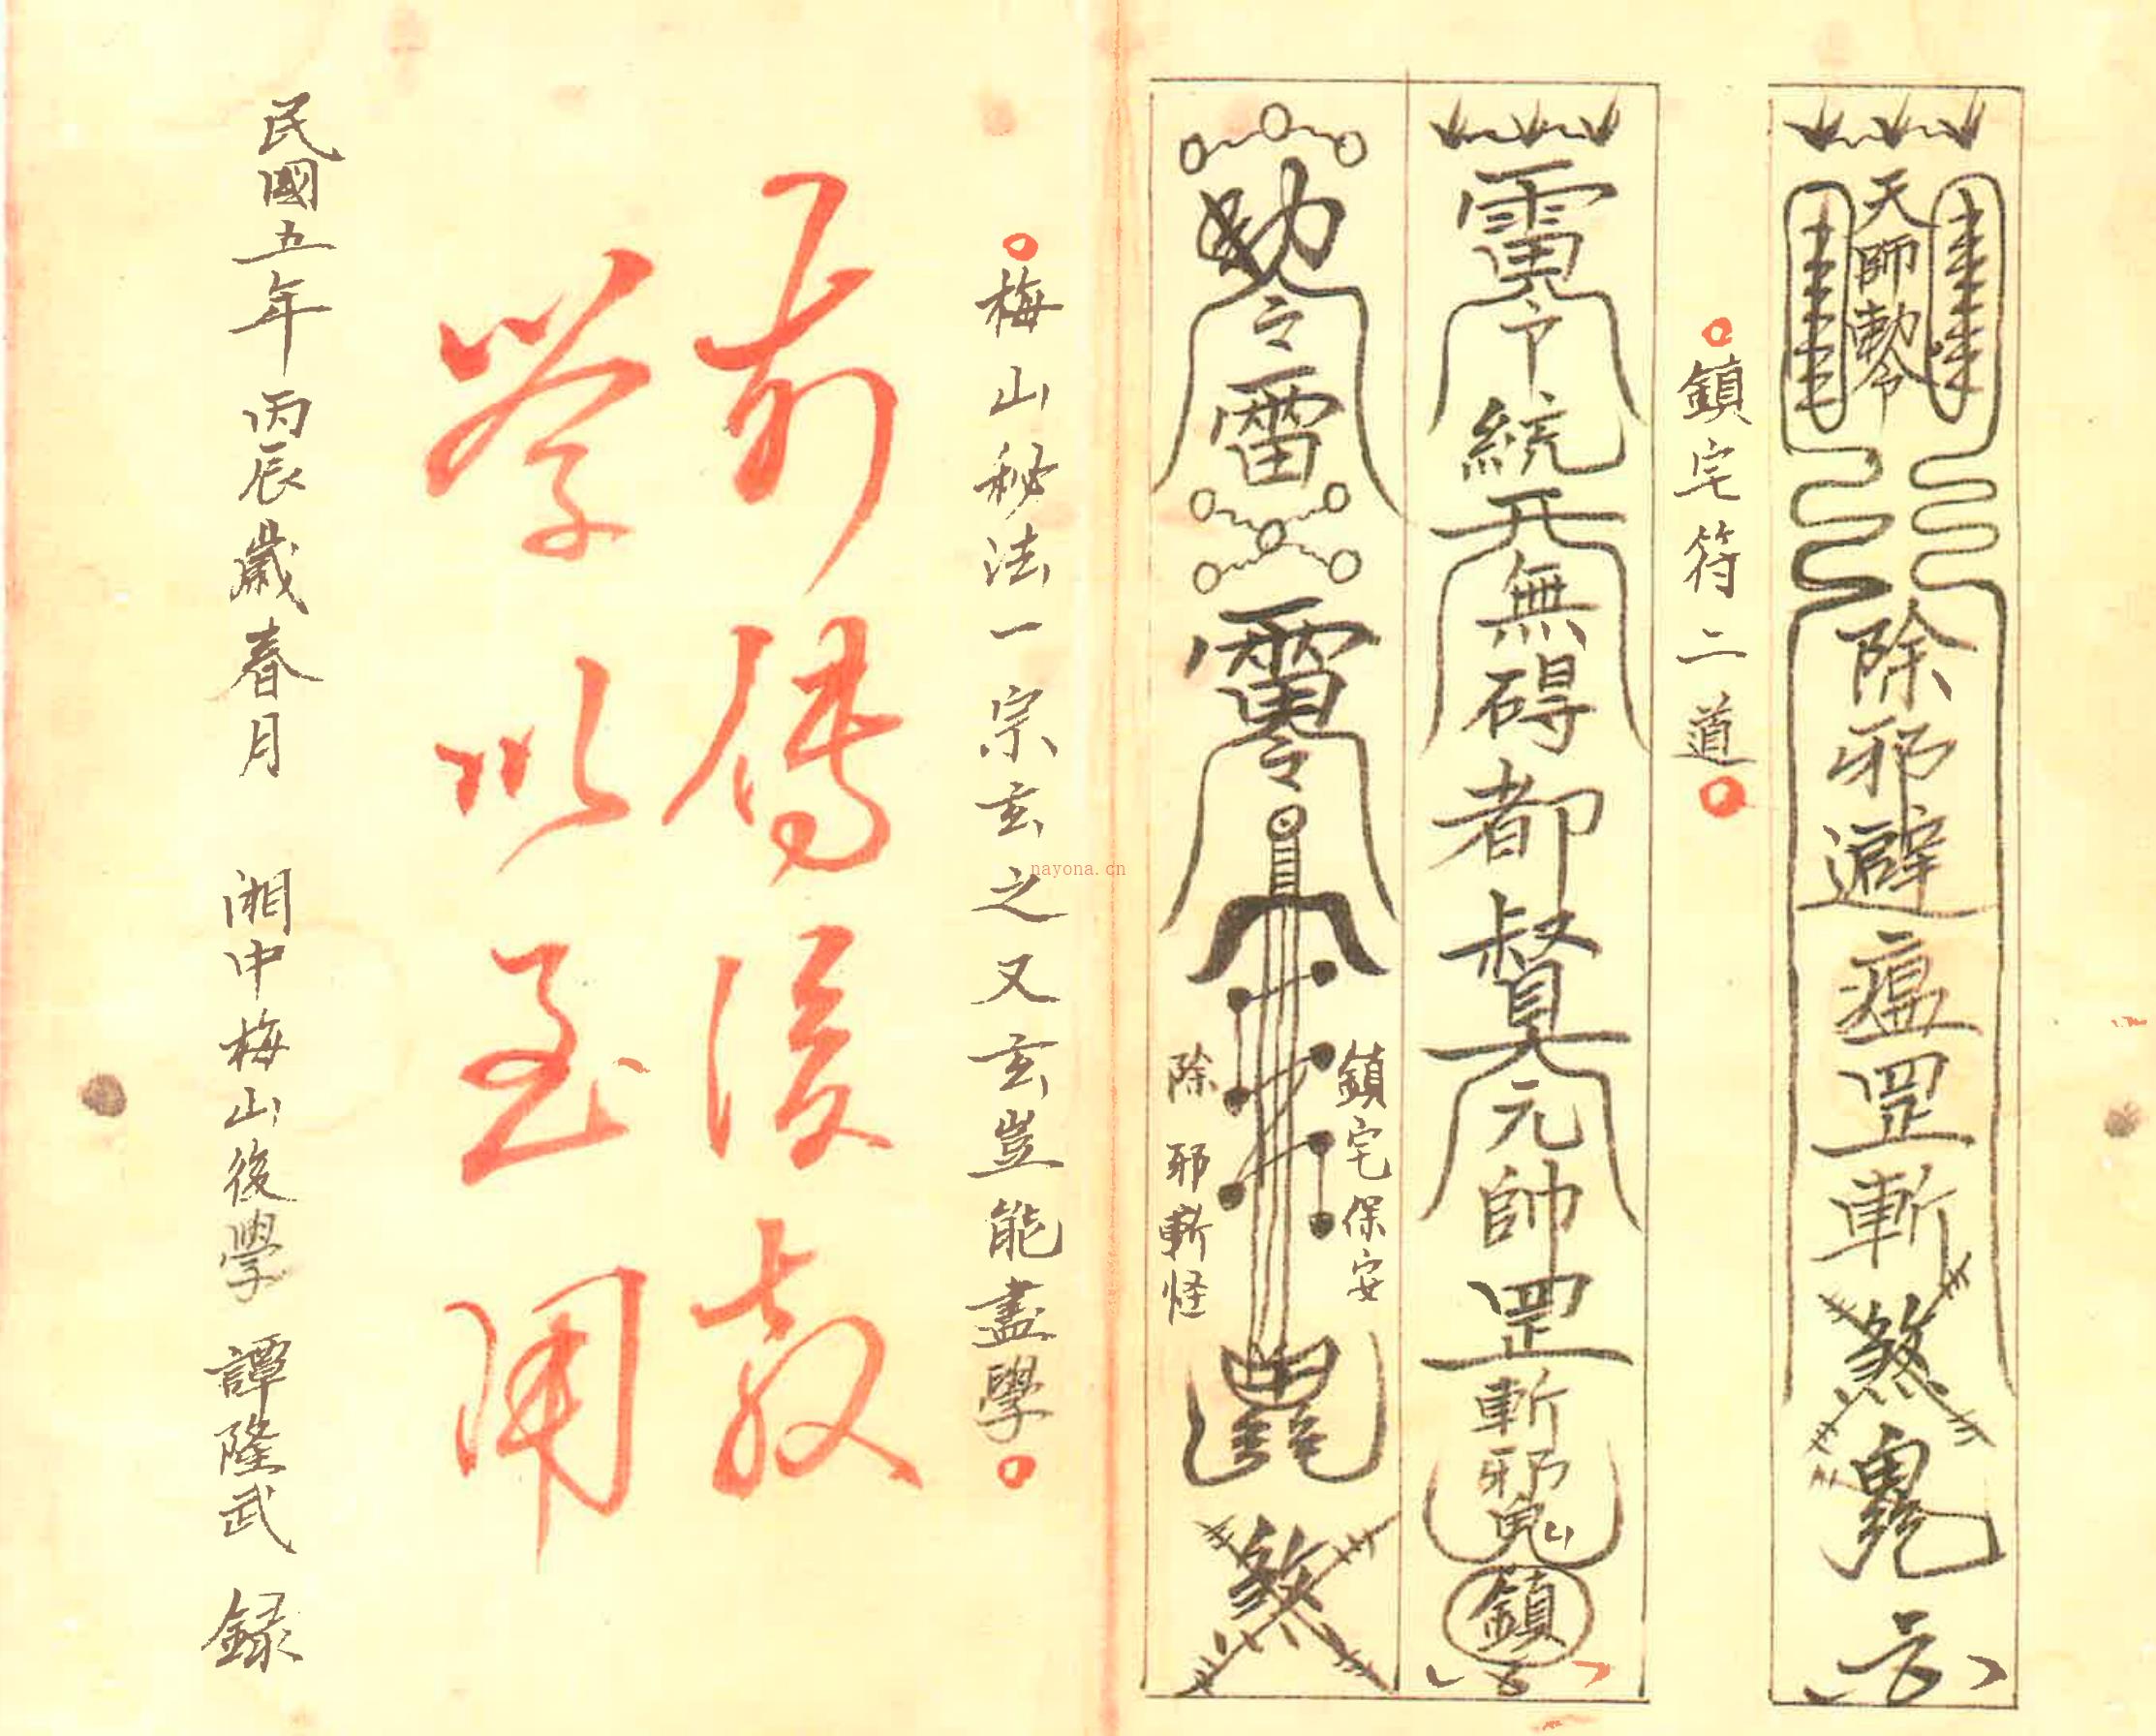 天師勅令
除邪避瘟罡斬煞鬼
鎮宅符二道
雷令統天無碍都督元帥罡斬邪鬼鎮
勅令雷
令
鎮宅保安
除邪斬怪
煞
梅山秘法一宗玄之又玄豈能盡學
前傳後教
学以致用
民國五年丙辰歲春月 湘中梅山後學 譚隆武 録
nayona.cn